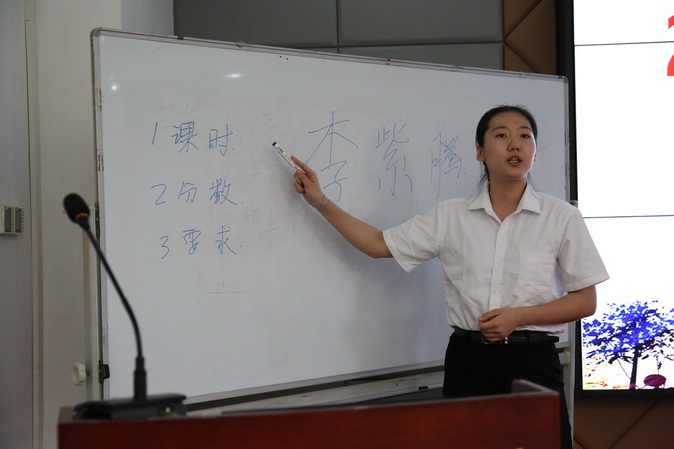 1.课时
2.分数
3.要求
李紫腾